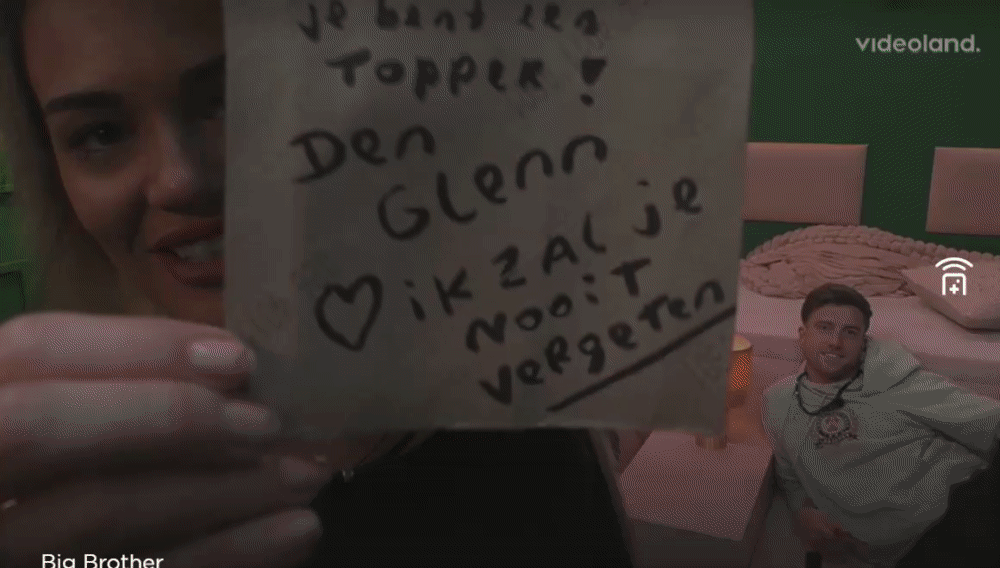 je bent een
TOPPER!
Den
Glenn
ik zal je
nooit
vergeten
videoland.
Big Brother